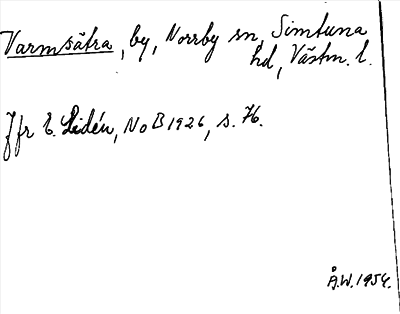 Varmsätra, by, Norrby sn, Simtuna
hd, Västm. l.
Jfr E. Lidén, NoB 1926, s. 76.
Å.W. 1954.